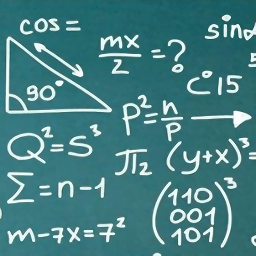 cos=
mx/2 =?
sinα
90°
C°15
P²=n/P
Q²=S³
π₂ (y+x)³=
Σ=n-1
(110
001
101)³
m-7x=7²